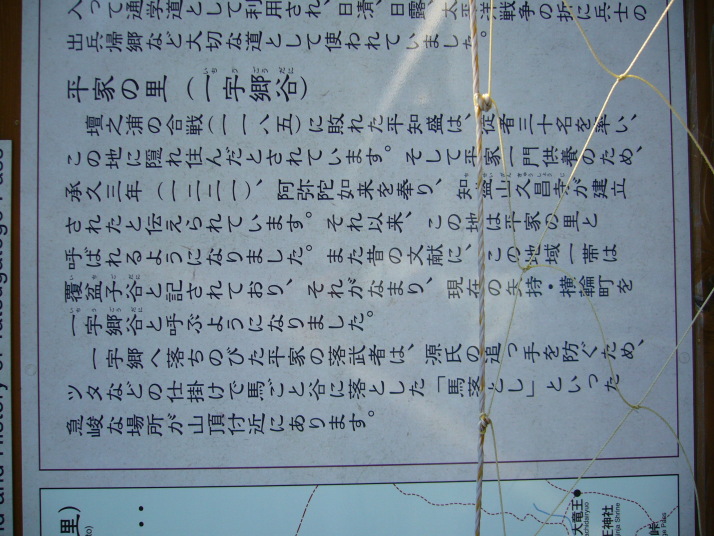 入って通学道として利用され、日清、日露、太平洋戦争の折に兵士の
出兵帰郷など大切な道として使われていました。
いちうごうだに
平家の里（一宇郷谷）
壇之浦の合戦（一一八五）に敗れた平知盛は、従者三十名を率い、
この地に隠れ住んだとされています。そして平家一門供養のため、
承久三年（一二二一）、阿弥陀如来を奉り、知盛山久昌寺が建立
されたと伝えられています。それ以来、この地は平家の里と
呼ばれるようになりました。また昔の文献に、この地域一帯は
いちごだに
覆盆子谷と記されており、それがなまり、現在の矢持・横輪町を
いちうごうだに
一宇郷谷と呼ぶようになりました。
一宇郷へ落ちのびた平家の落武者は、源氏の追っ手を防ぐため、
ツタなどの仕掛けで馬ごと谷に落とした「馬落とし」といった
急峻な場所が山頂付近にあります。
里）
大竜王
王神社
Shrine
峠
Pass
and History of
Pass